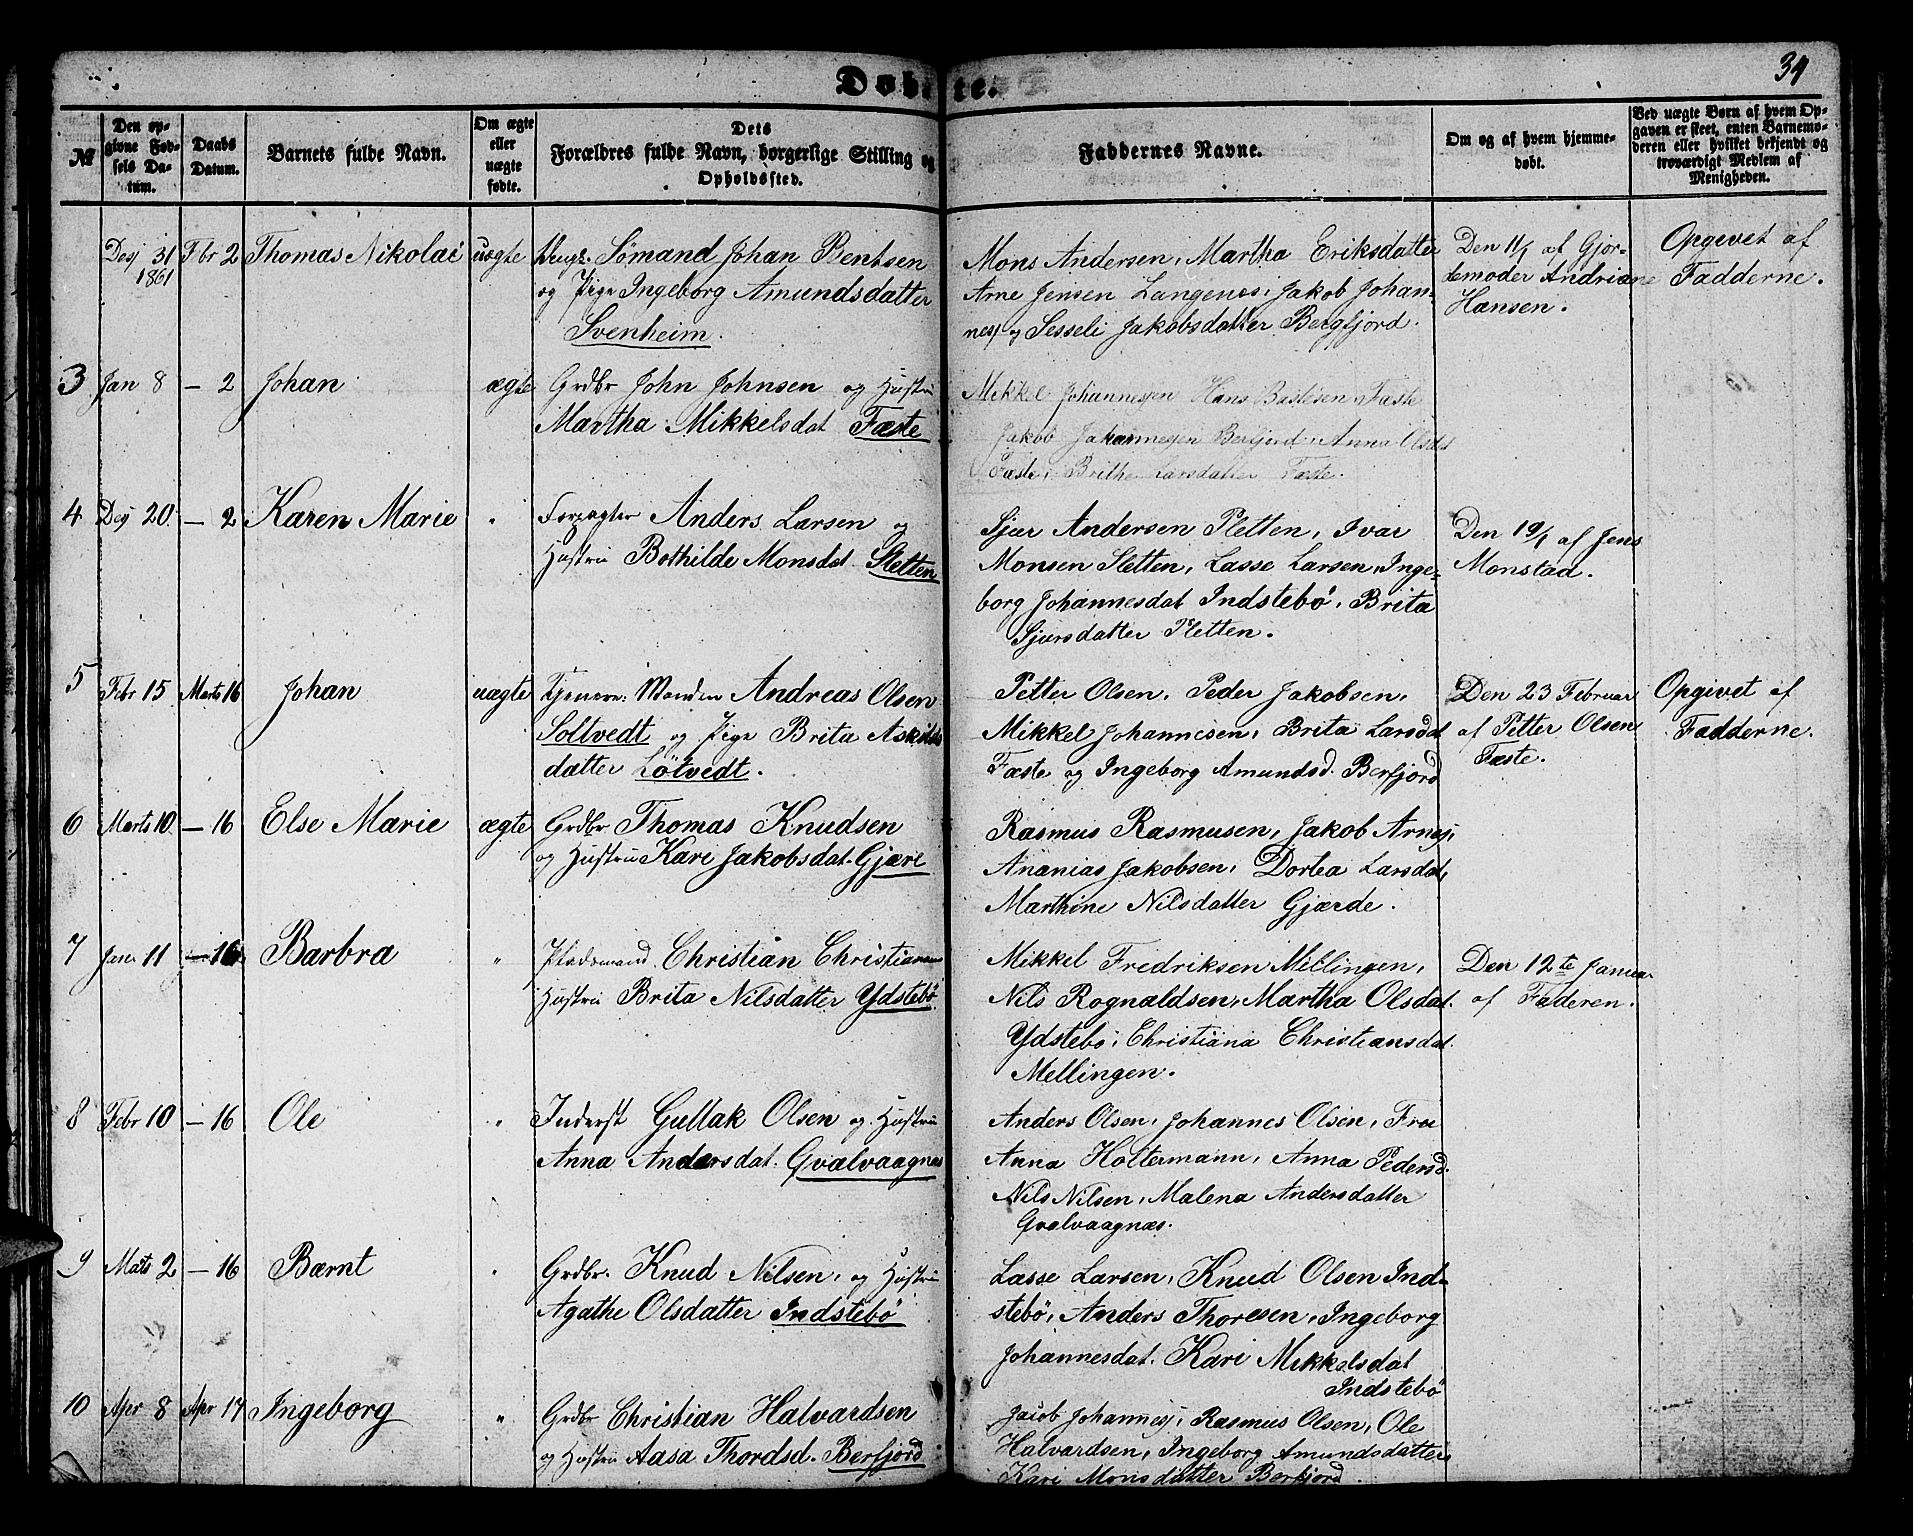 Døbte.
34
№
Den op-
givne Fød-
sels Da-
tum.
Daabs
Datum.
Barnets fulde Navn.
Om ægte
eller
uægte
fødte.
Dets
Forældres fulde Navn, borgerlige Stilling og
Opholdssted.
Faddernes Navne.
Om og af hvem hjemme-
døbt.
Ved uægte Børn af hvem Op-
gaven er skeet, enten Barnemo-
deren eller hvilket bekjendt og
troværdigt Medlem af
Menigheden.
Desj 31
1861
Fbr 2
Thomas Nikolai
uægte
Ungk. Sømand Johan Bentsen
og Pige Ingeborg Amundsdatter
Svenheim.
Mons Andersen, Martha Eriksdatter
Arne Jensen Langenes, Jakob Johan-
nesj og Sesseli Jakobsdatter Bergfjord.
Den 11/1 af Gjor-
demoder Andriane
Hansen.
Opgivet af
Fadderne.
3 Jan 8 – 2 Johan ægte
Grdbr John Johnsen og Hustru
Martha Mikkelsdat Fæste
Mikkel Johannesjen Hans Fæste
Jakob Johannesjen Berfjord. Anna Olsdt
Fæste, Brithe Larsdatter Fæste.
4 Desj 20. – 2 Karen Marie "
Forpagter Anders Larsen og
Hustru Bothilde Monsdat. Sletten
Sjur Andersen Sletten, Ivar
Monsen Sletten, Lasse Larsen, Inge-
borg Johannesdat Indstebø, Brita
Sjursdatter Sletten.
Den 19/1 af Jens
Monstad.
5 Febr 15 Marts 16 Johan uægte
Tjenere: Manden Andreas Olsen
Soltvedt og Pige Brita Askilds
datter Løtvedt.
Petter Olsen, Peder Jakobsen,
Mikkel Johannesen, Brita Larsdat
Fæste og Ingeborg Amundsd. Berfjord
Den 23 Februar
af Petter Olsen
Fæste.
Opgivet af
Fadderne.
6 Marts 10 – 16 Else Marie ægte
Grdbr Thomas Knudsen
og Hustru Kari Jakobsdat. Gjære
Rasmus Rasmusen, Jakob Arnesj,
Ananias Jakobsen, Dortea Larsdat,
Marthine Nilsdatter Gjærde.
7 Jan 11 – 16 Barbra "
Pladsmand Christian Christiansen
Hustru Brita Nilsdatter Ydstebø
Mikkel Fredriksen Millingen,
Nils Rognaldsen, Martha Olsdat.
Ydstebø, Christiana Christiansdat.
Mellingen.
Den 12te Januar
af Faderen.
8 Febr 10 – 16 Ole "
Inderst Gullak Olsen og Hustru
Anna Andersdat. Qvalvaagnæs
Anders Olsen, Johannes Olsen, Frøe
Anna Holtermann, Anna Pedersd.
Nils Nilsen, Malena Andersdatter
Qvalvaagnæs.
9 Mats 2 – 16 Bærnt "
Grdbr. Knud Nilsen, og Hustru
Agathe Olsdatter Indstebø
Lasse Larsen, Knud Olsen Ind-
stebø, Anders Thoresen, Ingeborg
Johannesdat. Kari Mikkelsdat
Indstebø
10 Apr 8 Apr 17 Ingeborg "
Grdbr Christian Halvardsen
og Hustru Aasa Thordsd. Berfjord
Jacob Johannesj, Rasmus Olsen, Ole
Halvardsen, Ingeborg Amundsdatter,
Kari Monsdatter Berfjord.